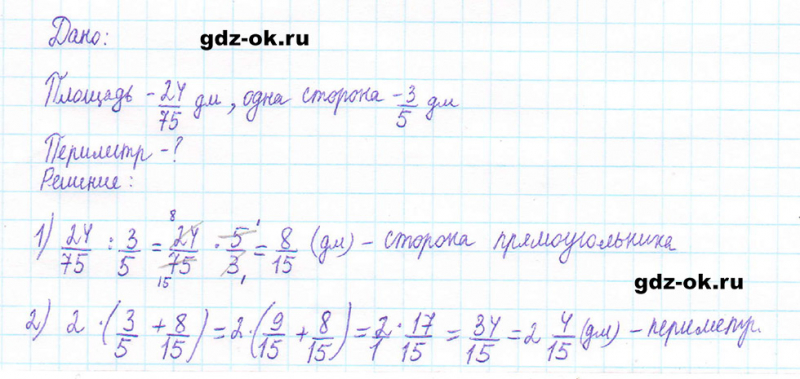 Дано:
gdz-ok.ru
Площадь - 24/75 дм, одна сторона - 3/5 дм
Периметр - ?
Решение:
1) 24/75 : 3/5 = 24/75 · 5/3 = 8/15 (дм) - сторона прямоугольника
8 1
15 1
gdz-ok.ru
2) 2 · (3/5 + 8/15) = 2 · (9/15 + 8/15) = 2/1 · 17/15 = 34/15 = 2 4/15 (дм) - периметр.